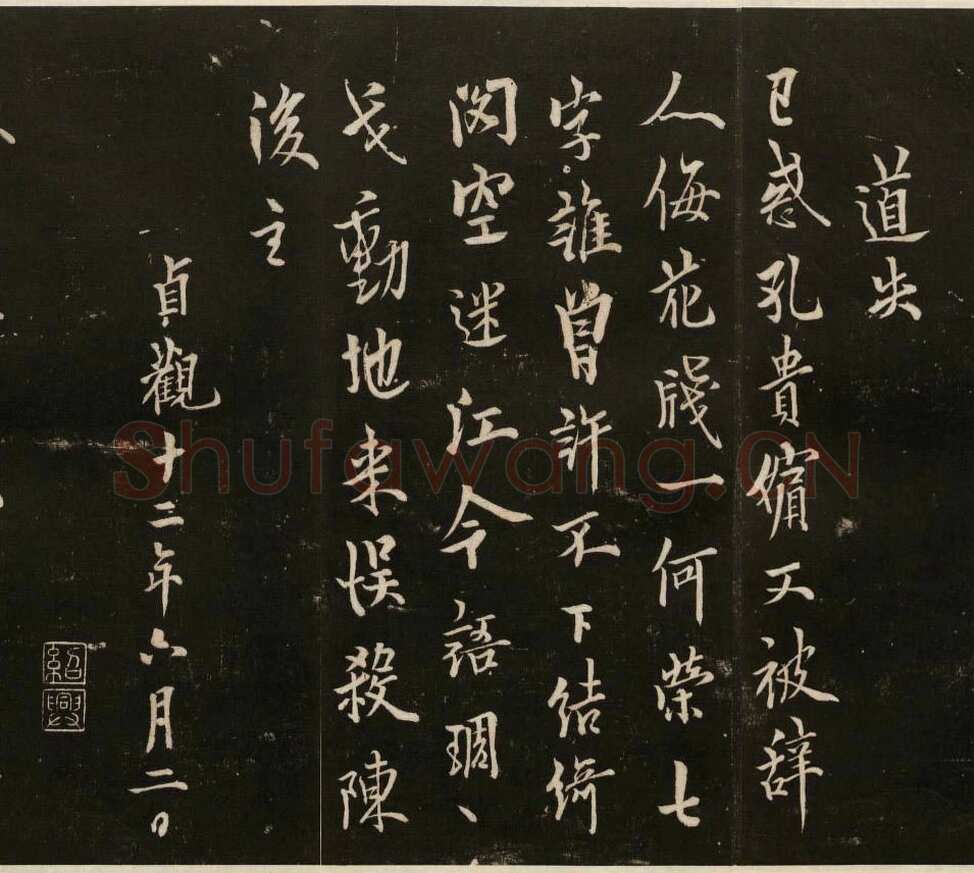 道失
已惑孔貴嬪又被辭
人侮花牋一何榮七
字誰曾許不下結綺
閣空迷江令語琱、
戈動地来悮殺陳
後主
貞觀十二年六月二日
紹興
Shufawang.CN